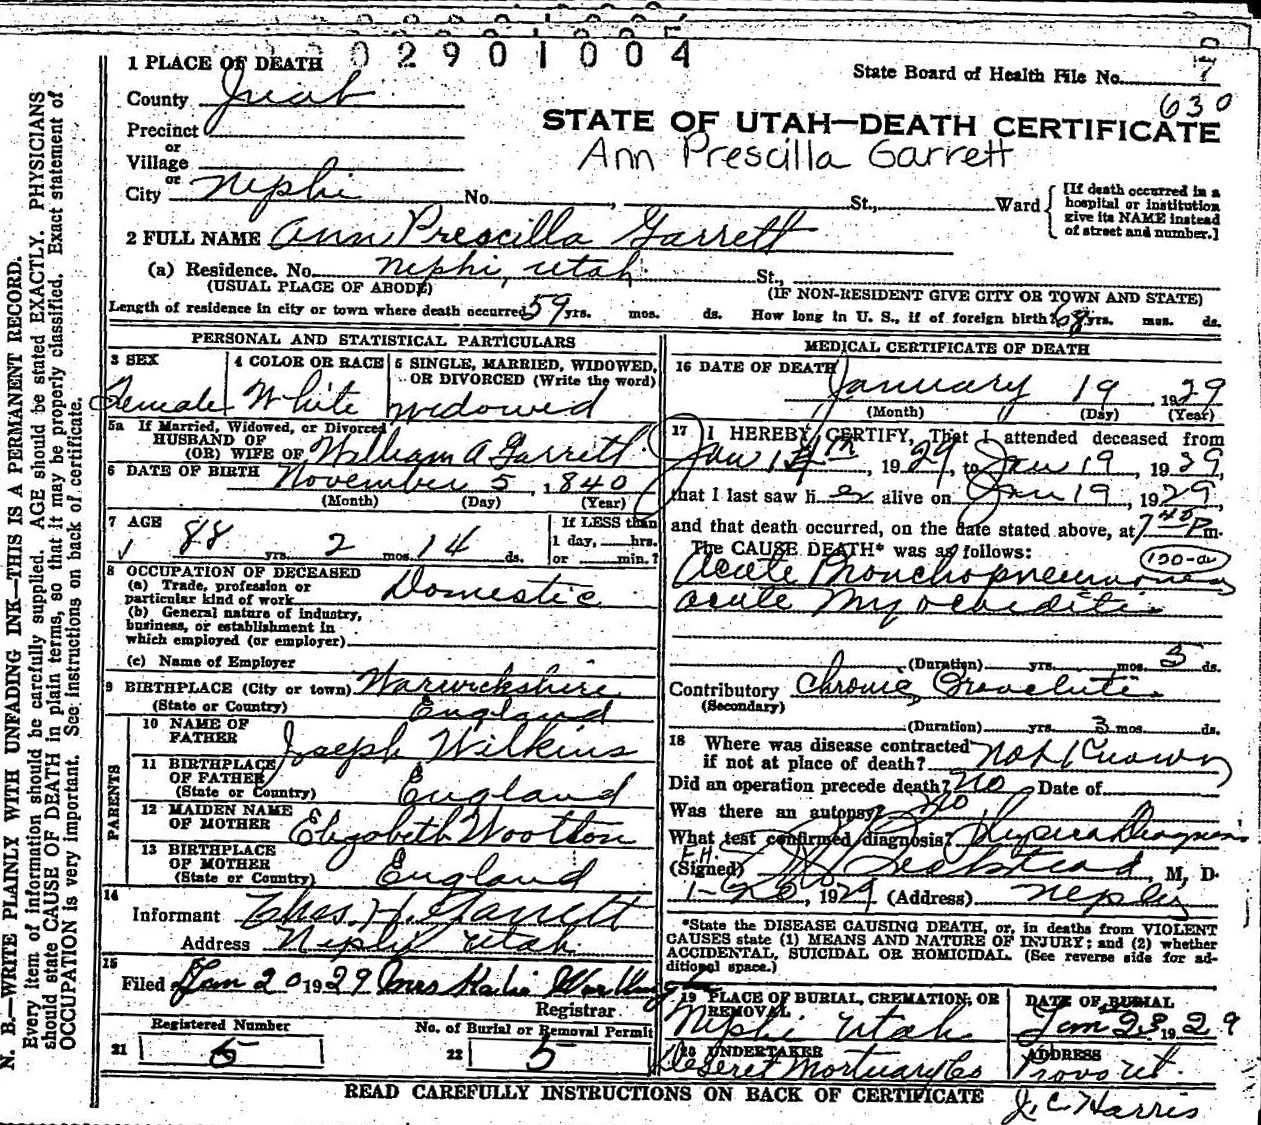 0 0 2 9 0 1 0 0 4
1 PLACE OF DEATH
County Juab
Precinct
or
Village
or
City Nephi No. , St., Ward
State Board of Health File No. 7
630
STATE OF UTAH—DEATH CERTIFICATE
Ann Prescilla Garrett
[If death occurred in a hospital or institution give its NAME instead of street and number.]
2 FULL NAME Ann Prescilla Garrett
(a) Residence. No. Nephi, Utah. St.,
(USUAL PLACE OF ABODE) (IF NON-RESIDENT GIVE CITY OR TOWN AND STATE)
Length of residence in city or town where death occurred 59 yrs. mos. ds. How long in U. S., if of foreign birth? 68 yrs. mos. ds.
PERSONAL AND STATISTICAL PARTICULARS
3 SEX
Female
4 COLOR OR RACE
White
5 SINGLE, MARRIED, WIDOWED, OR DIVORCED (Write the word)
widowed
5a If Married, Widowed, or Divorced
HUSBAND OF
(OR) WIFE OF William A Garrett
6 DATE OF BIRTH November 5, 1840
(Month) (Day) (Year)
7 AGE
88 yrs. 2 mos. 14 ds.
If LESS than 1 day, hrs. or min.?
8 OCCUPATION OF DECEASED
(a) Trade, profession or particular kind of work Domestic
(b) General nature of industry, business, or establishment in which employed (or employer)
(c) Name of Employer
9 BIRTHPLACE (City or town) Warwickshire
(State or Country) England
PARENTS
10 NAME OF FATHER Joseph Wilkins
11 BIRTHPLACE OF FATHER
(State or Country) England
12 MAIDEN NAME OF MOTHER Elizabeth Wootton
13 BIRTHPLACE OF MOTHER
(State or Country) England
14
Informant Chas. H. Garrett
Address Nephi Utah.
15
Filed Jan 20 1929 Mrs
Registrar
Registered Number
21 5
No. of Burial or Removal Permit
22 5
MEDICAL CERTIFICATE OF DEATH
16 DATE OF DEATH January 19 1929
(Month) (Day) (Year)
17 I HEREBY CERTIFY, That I attended deceased from
Jan 14th, 1929, to Jan 19, 1929,
that I last saw her alive on Jan 19, 1929,
and that death occurred, on the date stated above, at 7 40 P m.
The CAUSE DEATH* was as follows:
100-a
Acute Bronchopneumonia
acute Myocarditis
(Duration) yrs. mos. 5 ds.
Contributory Chronic
(Secondary)
(Duration) yrs. 3 mos. ds.
18 Where was disease contracted
if not at place of death? Not Known
Did an operation precede death? No Date of
Was there an autopsy? No
What test confirmed diagnosis?
(Signed) , M, D.
1-20, 1929 (Address) Nephi
*State the DISEASE CAUSING DEATH, or, in deaths from VIOLENT
CAUSES state (1) MEANS AND NATURE OF INJURY; and (2) whether
ACCIDENTAL, SUICIDAL OR HOMICIDAL. (See reverse side for additional space.)
19 PLACE OF BURIAL, CREMATION, OR REMOVAL
Nephi Utah
DATE OF BURIAL
Jan 23 1929
20 UNDERTAKER
Deseret Mortuary Co
ADDRESS
Provo Ut.
READ CAREFULLY INSTRUCTIONS ON BACK OF CERTIFICATE
J. C. Harris
N. B.—WRITE PLAINLY WITH UNFADING INK—THIS IS A PERMANENT RECORD.
Every item of information should be carefully supplied. AGE should be stated EXACTLY. PHYSICIANS
should state CAUSE OF DEATH in plain terms, so that it may be properly classified. Exact statement of
OCCUPATION is very important. See instructions on back of certificate.